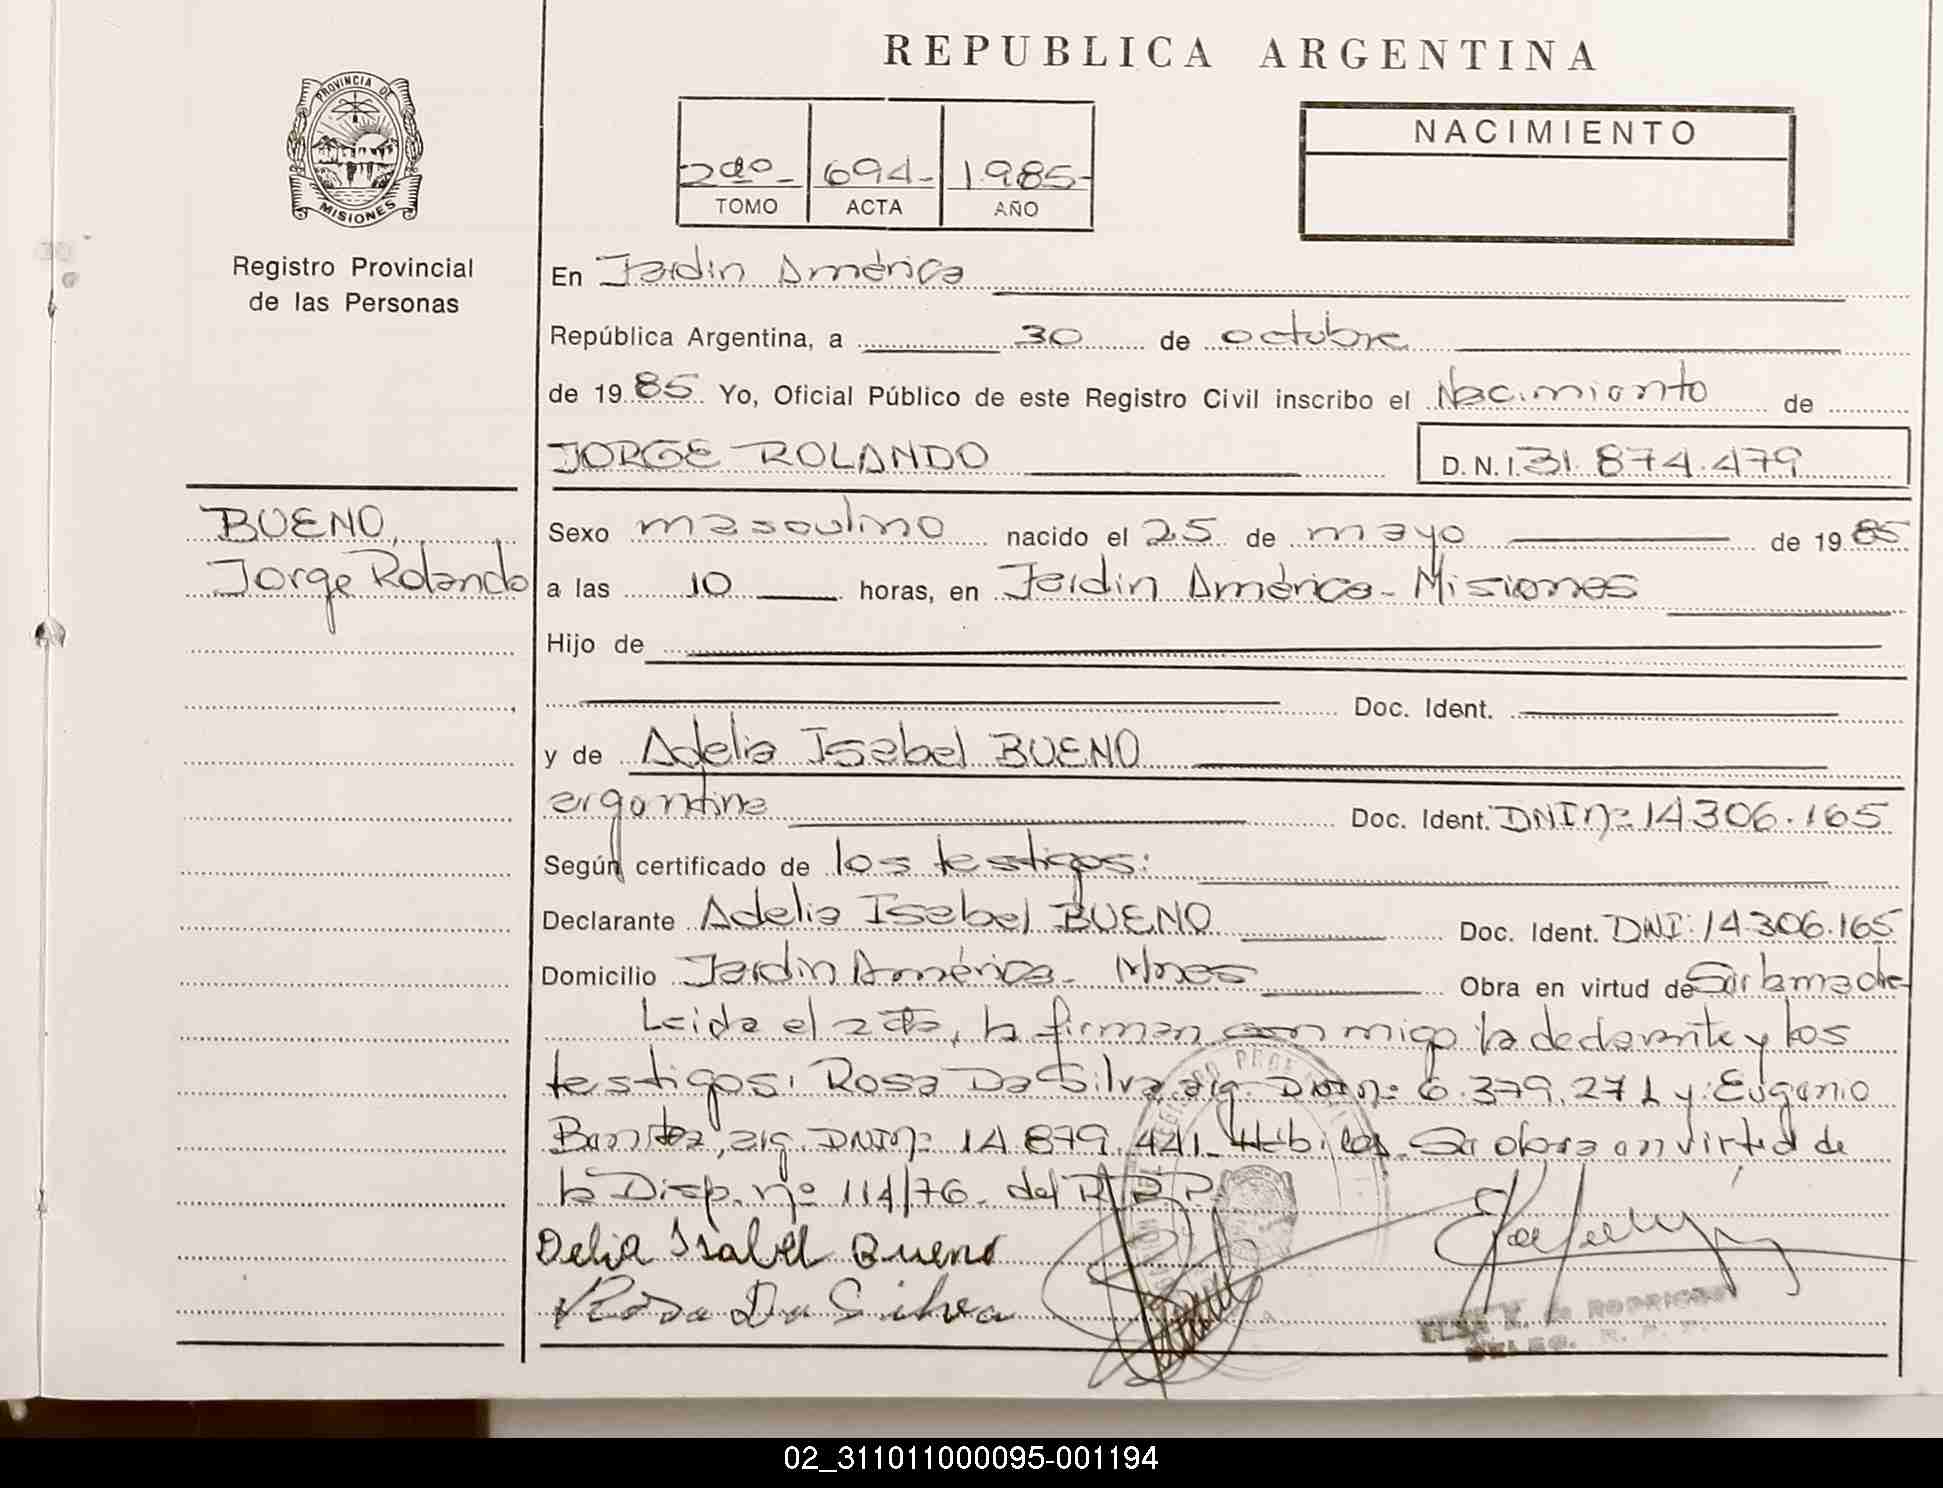 REPUBLICA ARGENTINA
PROVINCIA DE
MISIONES
Registro Provincial
de las Personas
2do- 694- 1.985-
TOMO ACTA AÑO
NACIMIENTO
En Jardin América
República Argentina, a 30 de octubre
de 19 85 Yo, Oficial Público de este Registro Civil inscribo el Nacimiento de
JORGE ROLANDO D.N.I. 31.874.479
BUENO,
Jorge Rolando
Sexo masculino nacido el 25 de mayo de 19 85
a las 10 horas, en Jardin América- Misiones
Hijo de
Doc. Ident.
y de Adelia Isabel BUENO
argentina Doc. Ident. DNI nº 14306.165
Según certificado de los testigos:
Declarante Adelia Isabel BUENO Doc. Ident. DNI: 14.306.165
Domicilio Jardin América- Mnes Obra en virtud de Ser la madre
Leida el acta, la firman con migo la declarante y los
testigos: Rosa Da Silva, arg. DNI nº 6.379.271 y: Eugenio
Benitez, arg. DNI nº 14.879.441- Hábiles. Se obra en virtud de
la Disp. nº 114/76- del R.P.P.
Delia Isabel Bueno
Rosa Da Silva
ELSA K. de RODRIGUEZ
DELEG. R. P. P.
02_311011000095-001194